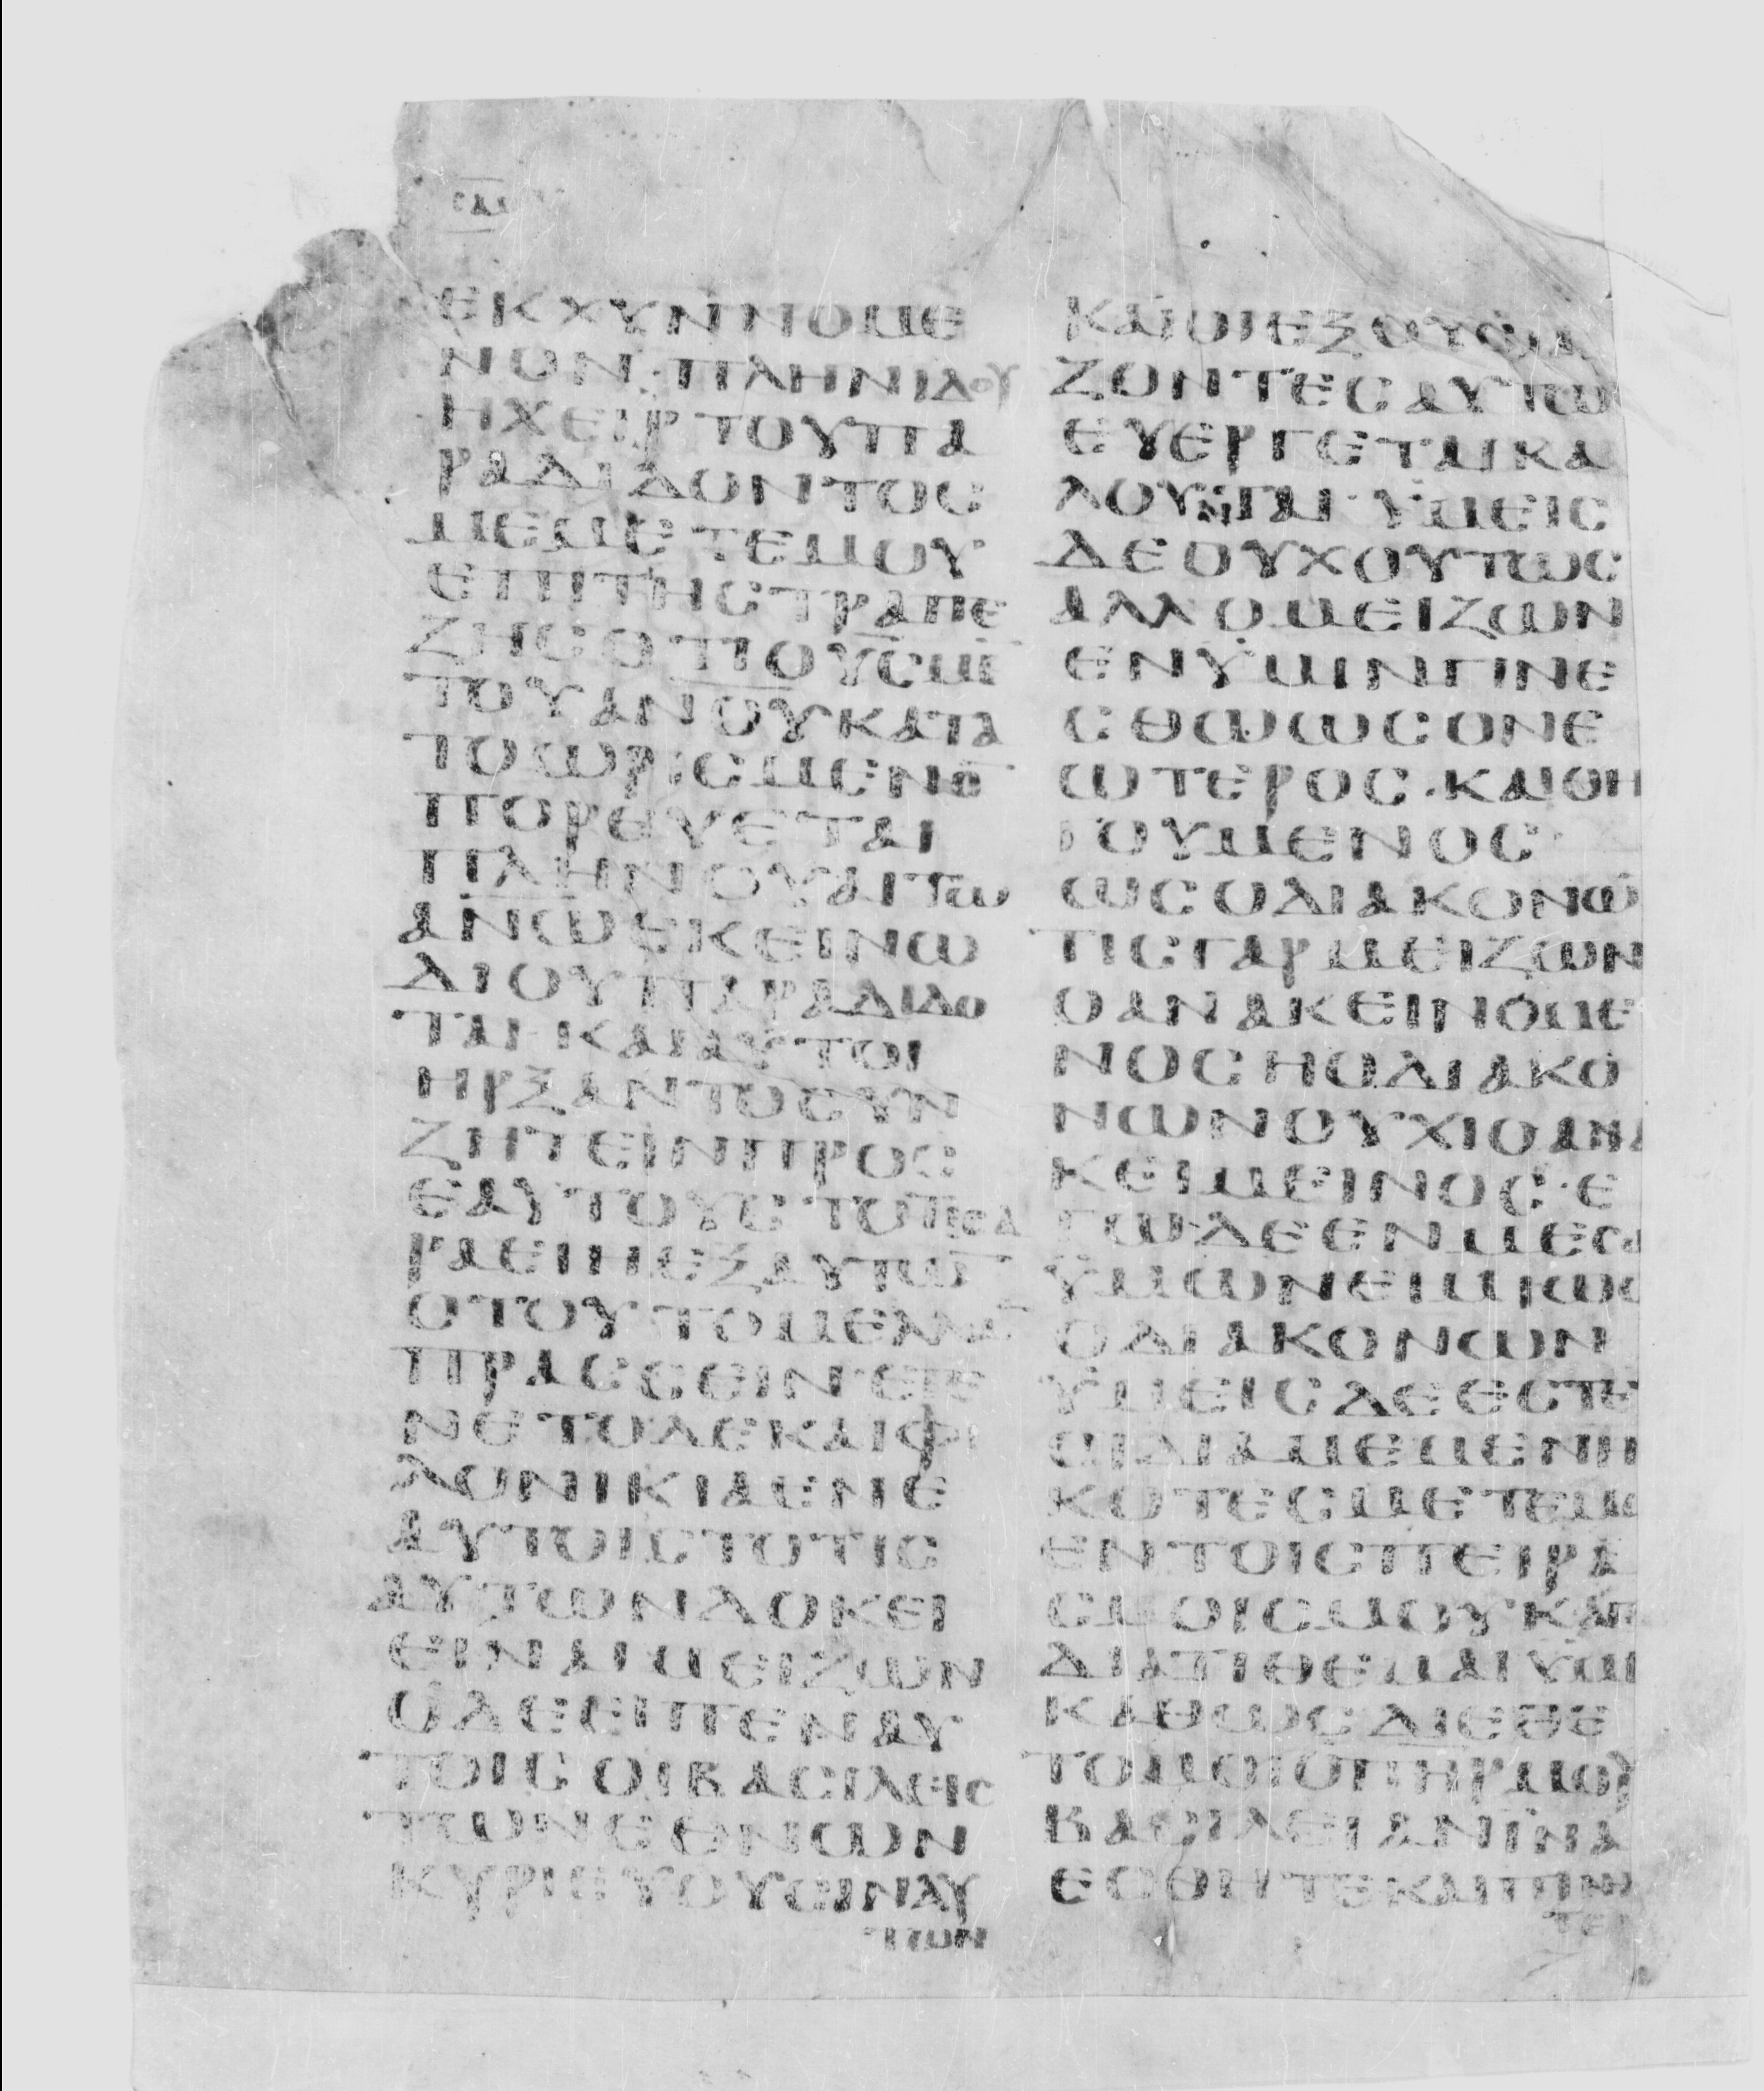 ΕΚΧΥΝΝΟΜΕ
ΝΟΝ·ΠΛΗΝΙΔΟΥ
ΗΧΕΙΡΤΟΥΠΑ
ΡΑΔΙΔΟΝΤΟϹ
ΜΕΜΕΤΕΜΟΥ
ΕΠΙΤΗϹΤΡΑΠΕ
ΖΗϹΟΤΙΟΥ̅Ϲ̅ΜΕ̅
ΤΟΥΑΝΟΥΚΑΤΑ
ΤΟΩΡΙϹΜΕΝΟ̅
ΠΟΡΕΥΕΤΑΙ
ΠΛΗΝΟΥΑΙΤΩ
Α̅Ν̅Ω̅ΕΚΕΙΝΩ
ΔΙΟΥΠΑΡΑΔΙΔΟ
ΤΑΙ·ΚΑΙΑΥΤΟΙ
ΗΡΞΑΝΤΟϹΥΝ
ΖΗΤΕΙΝΠΡΟϹ
ΕΑΥΤΟΥϹΤΟΤΙϹΑ
ΡΑΕΙΗΕΞΑΥΤΩ̅
ΟΤΟΥΤΟΜΕΛΛΩ̅
ΠΡΑϹϹΕΙΝ·ΕΓΕ
ΝΕΤΟΔΕΚΑΙΦΙ
ΛΟΝΙΚΙΑΕΝΕ
ΑΥΤΟΙϹΤΟΤΙϹ
ΑΥΤΩΝΔΟΚΕΙ
ΕΙΝΑΙΜΕΙΖΩΝ
ΟΔΕΕΙΠΕΝΑΥ
ΤΟΙϹΟΙΒΑϹΙΛΕΙϹ
ΤΩΝΕΘΝΩΝ
ΚΥΡΙΕΥΟΥϹΙΝΑΥ
ΤΩΝ
ΚΑΙΟΙΕΞΟΥϹΙΑ
ΖΟΝΤΕϹΑΥΤΩ
ΕΥΕΡΓΕΤΑΙΚΑ
ΛΟΥΝΤΑΙ·ΥΜΕΙϹ
ΔΕΟΥΧΟΥΤΩϹ
ΑΛΛΟΜΕΙΖΩΝ
ΕΝΥΜΙΝΓΙΝΕ
ϹΘΩΩϹΟΝΕ
ΩΤΕΡΟϹ·ΚΑΙΟΗ
ΓΟΥΜΕΝΟϹ
ΩϹΟΔΙΑΚΟΝΩ̅
ΤΙϹΓΑΡΜΕΙΖΩΝ
ΟΑΝΑΚΕΙΝΟΜΕ
ΝΟϹΗΟΔΙΑΚΟ
ΝΩΝΟΥΧΙΟΑΝΑ
ΚΕΙΜΕΙΝΟϹ·Ε
ΓΩΔΕΕΝΜΕϹΩ
ΥΜΩΝΕΙΜΙΩϹ
ΟΔΙΑΚΟΝΩΝ
ΥΜΕΙϹΔΕΕϹΤΕ
ΟΙΔΙΑΜΕΜΕΝΗ
ΚΟΤΕϹΜΕΤΕΜΟ
ΕΝΤΟΙϹΠΕΙΡΑ
ϹΜΟΙϹΜΟΥ·ΚΑΓ
ΔΙΑΤΙΘΕΜΑΙΥΜΙ
ΚΑΘΩϹΔΙΕΘΕ
ΤΟΜΟΙΟΠΗΡΜΟΥ
ΒΑϹΙΛΕΙΑΝΪΝΑ
ΕϹΘΗΤΕΚΑΙΠΙΝΗ
ΤΕ